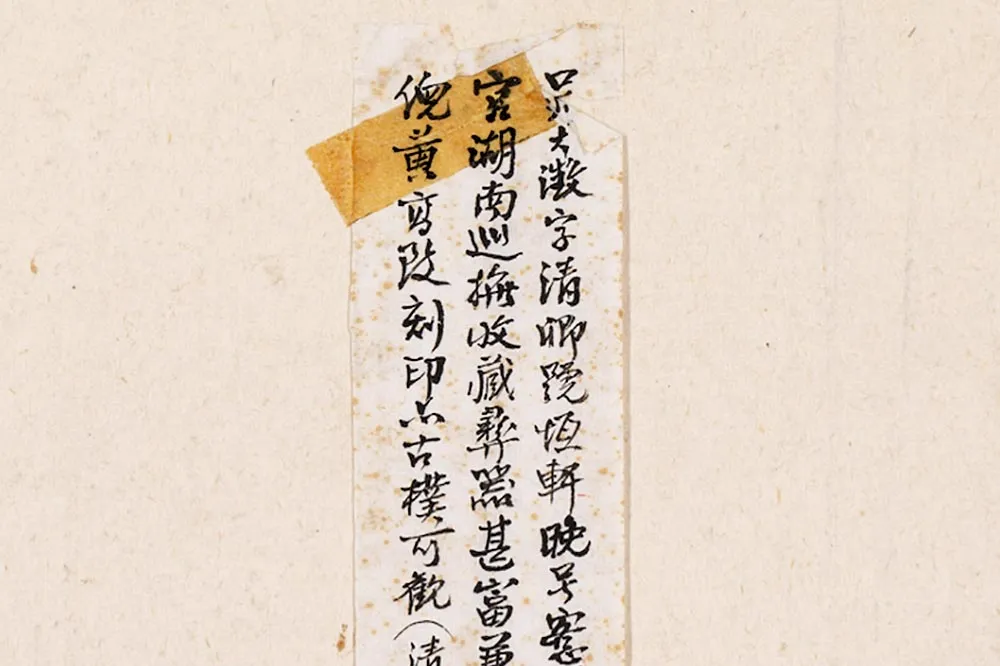 吳大澂字清卿號恆軒晚号愙
官湖南巡撫收藏彝器甚富兼
倪黄寫刻印亦古樸可觀（清